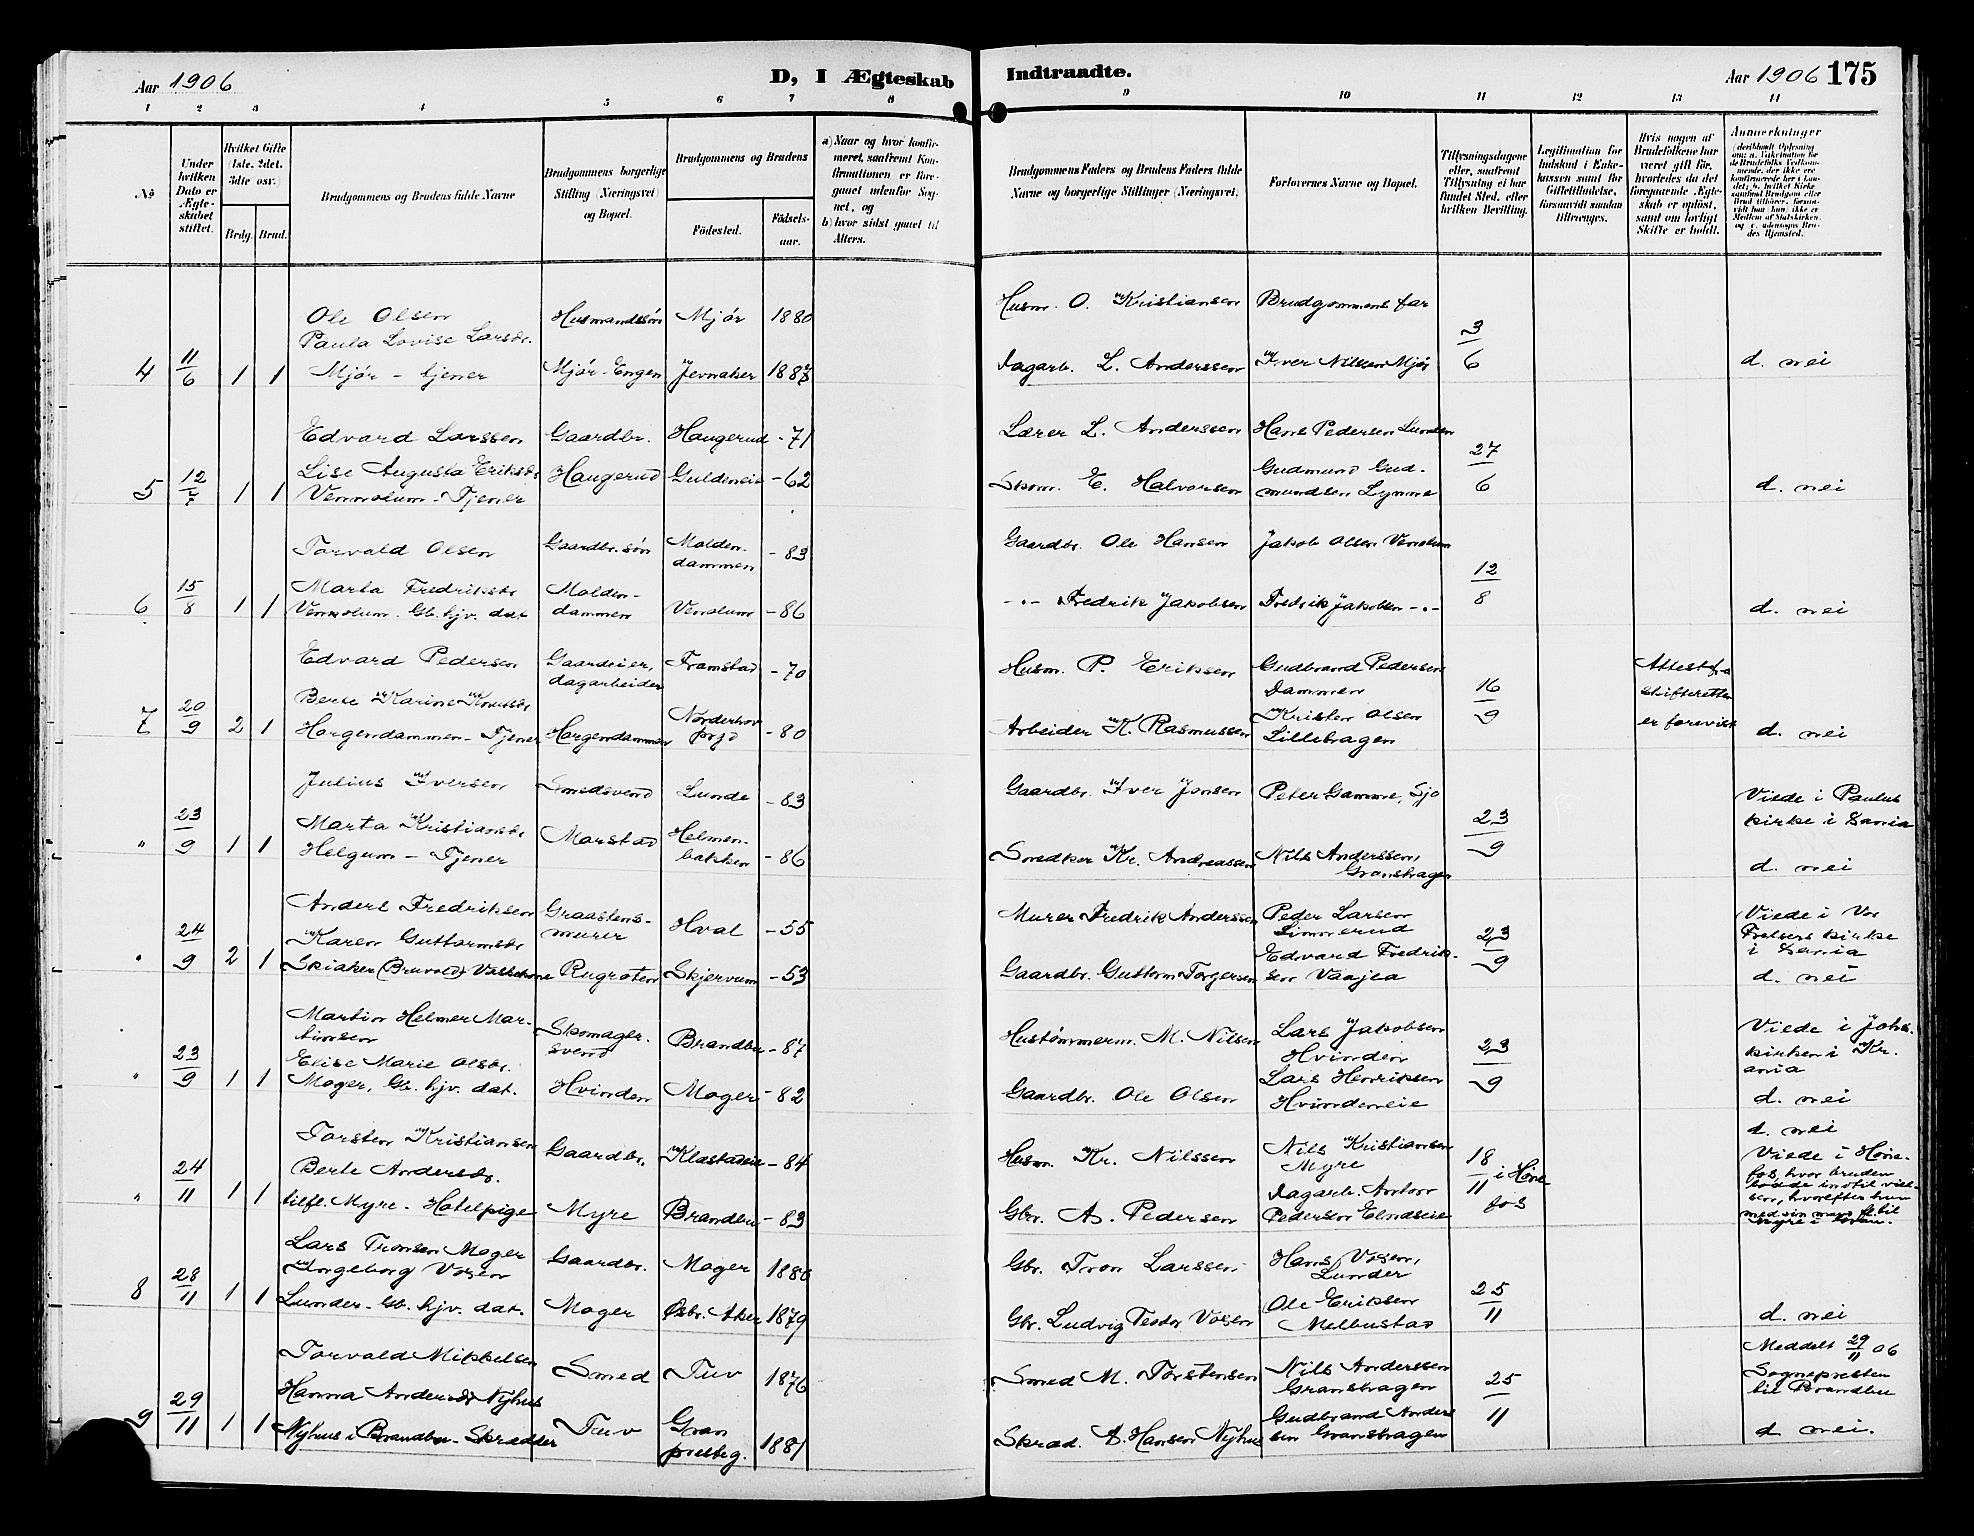 Aar 1906
D, I Ægteskab
Indtraadte.
Aar 1906 175
1 2 3 4 5 6 7 8 9 10 11 12 13 14
No
Under hvilken Dato er Ægteskabet stiftet.
Hvilket Gifte (1ste, 2det, 3die osv.)
Brdg. Brud.
Brudgommens og Brudens fulde Navne
Brudgommens borgerlige Stilling (Næringsvei) og Bopæl.
Brudgommens og Brudens
Födested.
Födselsaar.
a) Naar og hvor konfirmeret, saafremt Konfirmationen er foregaaet udenfor Sognet, og
b) hvor sidst gaaet til Alters.
Brudgommens Faders og Brudens Faders fulde Navne og borgerlige Stillinger (Næringsvei)
Forlovernes Navne og Bopæl.
Tillysningsdagene eller, saafremt Tillysning ei har fundet Sted, efter hvilken Bevilling.
Legitimation for Indskud i Enkekassen samt for Giftetilladelse, forsaavidt saadan tiltrænges.
Hvis nogen af Brudefolkene har været gift för, hvorledes da det foregaaende Ægteskab er oplöst, samt om lovligt Skifte er holdt.
Anmerkninger
4 11/6 1 1
Ole Olsen Husmandssøn Mjør 1880 Husm. O. Kristiansen Brudgommens far
Paula Lovise Larsdr.
Mjør - tjener Mjør-Engen Jevnaker 1887 Dagarb. L. Anderssen Iver Nilssen Mjør 3/6 d. nei
5 12/7 1 1
Edvard Larssen Gaardbr. Haugerud -71 Lærer L. Anderssen Hans Pedersen Lunden
Lise Augusta Eriksdr. Haugerud Guldeneie -62 Skom. E. Halvorsen Gudmund Gudmundsen Lynne 27/6
Vennolum - Tjener d. nei
6 15/8 1 1
Torvald Olsen Gaardbr. søn Moldendammen -83 Gaardbr. Ole Hansen Jakob Olsen Venolum
Marta Fredriksdr. Moldendammen Venolum -86 -"- Fredrik Jakobsen Fredrik Jakobsen -"- 12/8
Vennolum. Gb. hjv. dat d. nei
7 20/9 2 1
Edvard Pedersen Gaardeier, dagarbeider Framstad -70 Husm. P. Eriksen Gudbrand Pedersen Dammen
Berte Karine Knutsdr.
Horgendammen - Tjener Horgendammen Norderhov prgd -80 Arbeider K. Rasmussen Kristen Olsen Lillehagen 16/9
Attest fra skifteretten er forevist
d. nei
" 23/9 1 1
Julius Iversen Smedsvend Lunde -83 Gaardbr. Iver Jonsen Peter Gamme, Sjo
Marta Kristiansdr. Marstad Helmenbakken -86 Smedker Kr. Andreassen Nils Anderssen, Granshagen 23/9
Helgum - Tjener
Viede i Paulus kirke i Xania
d. nei
" 24/9 2 1
Anders Fredriksen Graastensmurer Hval -55 Murer Fredrik Anderssen Peder Larsen Limmerud
Karen Guttormsdr.
Skiaker (Bruvold) Rugroten Skjervum -53 Gaardbr. Guttorm Torgersen Edvard Fredriksen Vaajea 23/9
Viede i Vor Frelsers kirke i Xania
d. nei
" 23/9 1 1
Martin Helmer Martinsen Skomagersvend Brandbu -87 Hustømmerm. M. Nilsen Lars Jakobsen Hvinden
Elise Marie Olsdr.
Moger, Gb. hjv. dat. Hvinden Moger -82 Gaardbr. Ole Olsen Lars Henriksen Hvindeneie 23/9
Viede i Johs. kirken i Kr.ania
d. nei
" 24/11 1 1
Torsten Kristiansen Gaardbr. Klastadeie -84 Husm. Kr. Nilssen Nils Kristiansen Myre
Berte Andersdr.
tilfl. Myre - Hotelpige Myre Brandbu -83 Gbr. A. Pedersen Dagarb. Anton Pedersen Elndseie 18/11 i Hønefos
d. nei
Viede i Hønefos, hvor bruden bodde indtil vielsen, hvorefter hun med sin mann fl. til Myre i Gran.
8 28/11 1 1
Lars Tronsen Moger Gaardbr. Moger 1880 Gbr. Tron Larssen Hans Vøien, Lunder
Ingeborg Vøien
Lunder - Gb. hjv. dat. Moger Østr. Aker 1879 Gbr. Ludvig Teodor Vøien Ole Eriksen Melbustad 25/11 d. nei
9 29/11 1 1
Torvald Mikkelsen Smed Tuv 1876 Smed M. Torstensen Nils Anderssen Granshagen
Hanna Andersdr Nyhus
Nyhus i Brandbu - Skrædder Tuv Gran præsteg. 1881 Skræd. A. Hansen Nyhus Gudbrand Anderssen Granshagen 25/11
Meddelt 29/11 06 Sognepresten til Brandbu
d nei.